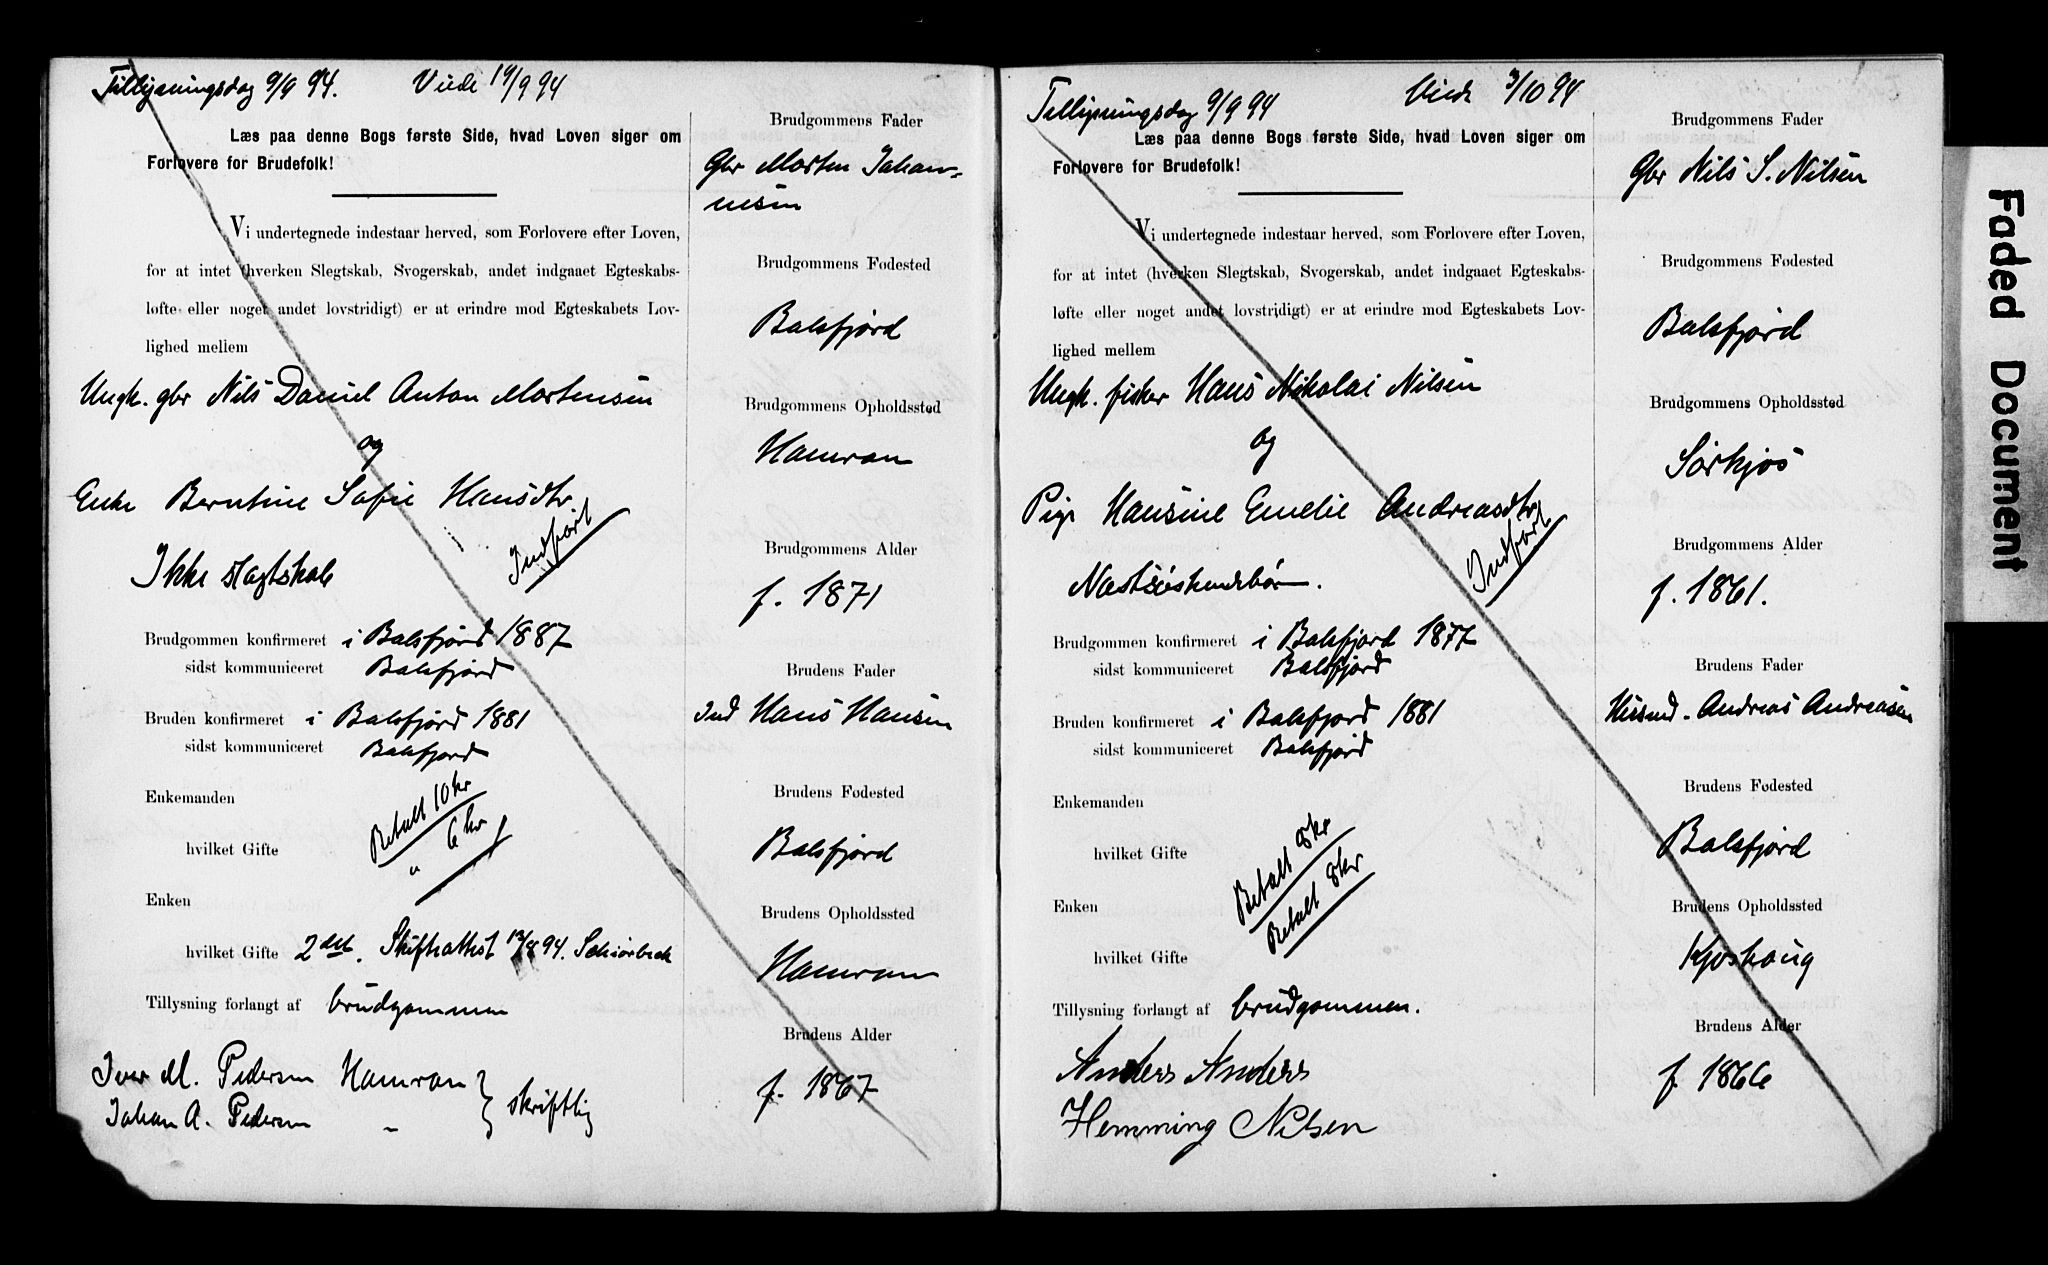 Tillysningsdag 9/9 94. Viede 19/9 94
Læs paa denne Bogs første Side, hvad Loven siger om
Forlovere for Brudefolk!
Vi undertegnede indestaar herved, som Forlovere efter Loven,
for at intet (hverken Slegtskab, Svogerskab, andet indgaaet Egteskabs-
løfte eller noget andet lovstridigt) er at erindre mod Egteskabets Lov-
lighed mellem
Ungk. gbr Nils Daniel Anton Mortensen
og
Enke Berntine Sofie Hansdtr
Indført
Ikke slægtskab
Brudgommen konfirmeret i Balsfjord 1887
sidst kommuniceret Balsfjord
Bruden konfirmeret i Balsfjord 1881
sidst kommuniceret Balsfjord
Enkemanden
Betalt 10 kr
" 6 kr
hvilket Gifte
Enken
hvilket Gifte 2det. Skifteattest 13/8 94. Schiørbeck
Tillysning forlangt af brudgommen
Iver M. Pedersen Hamran
Johan A. Pedersen " } skriftlig
Brudgommens Fader
Gbr Morten Johan-
nesen
Brudgommens Fødested
Balsfjord
Brudgommens Opholdssted
Hamran
Brudgommens Alder
f. 1871
Brudens Fader
Ind Hans Hansen
Brudens Fødested
Balsfjord
Brudens Opholdssted
Hamran
Brudens Alder
f. 1867
Tillysningsdag 9/9 94 Viede 3/10 94
Læs paa denne Bogs første Side, hvad Loven siger om
Forlovere for Brudefolk!
Vi undertegnede indestaar herved, som Forlovere efter Loven,
for at intet (hverken Slegtskab, Svogerskab, andet indgaaet Egteskabs-
løfte eller noget andet lovstridigt) er at erindre mod Egteskabets Lov-
lighed mellem
Ungk. fisker Hans Nikolai Nilsen
og
Pige Hansine Emelie Andreasdtr
Indført
Næstsøskendebørn.
Brudgommen konfirmeret i Balsfjord 1877
sidst kommuniceret Balsfjord
Bruden konfirmeret i Balsfjord 1881
sidst kommuniceret Balsfjord
Enkemanden
hvilket Gifte
Betalt 8 kr
Betalt 8 kr
Enken
hvilket Gifte
Tillysning forlangt af brudgommen.
Anders Anders
Hemming Nilsen
Brudgommens Fader
Gbr Nils S. Nilsen
Brudgommens Fødested
Balsfjord
Brudgommens Opholdssted
Sørkjos
Brudgommens Alder
f. 1861.
Brudens Fader
Husmd. Andreas Andreasen
Brudens Fødested
Balsfjord
Brudens Opholdssted
Kjoshaug
Brudens Alder
f. 1866
Faded Document